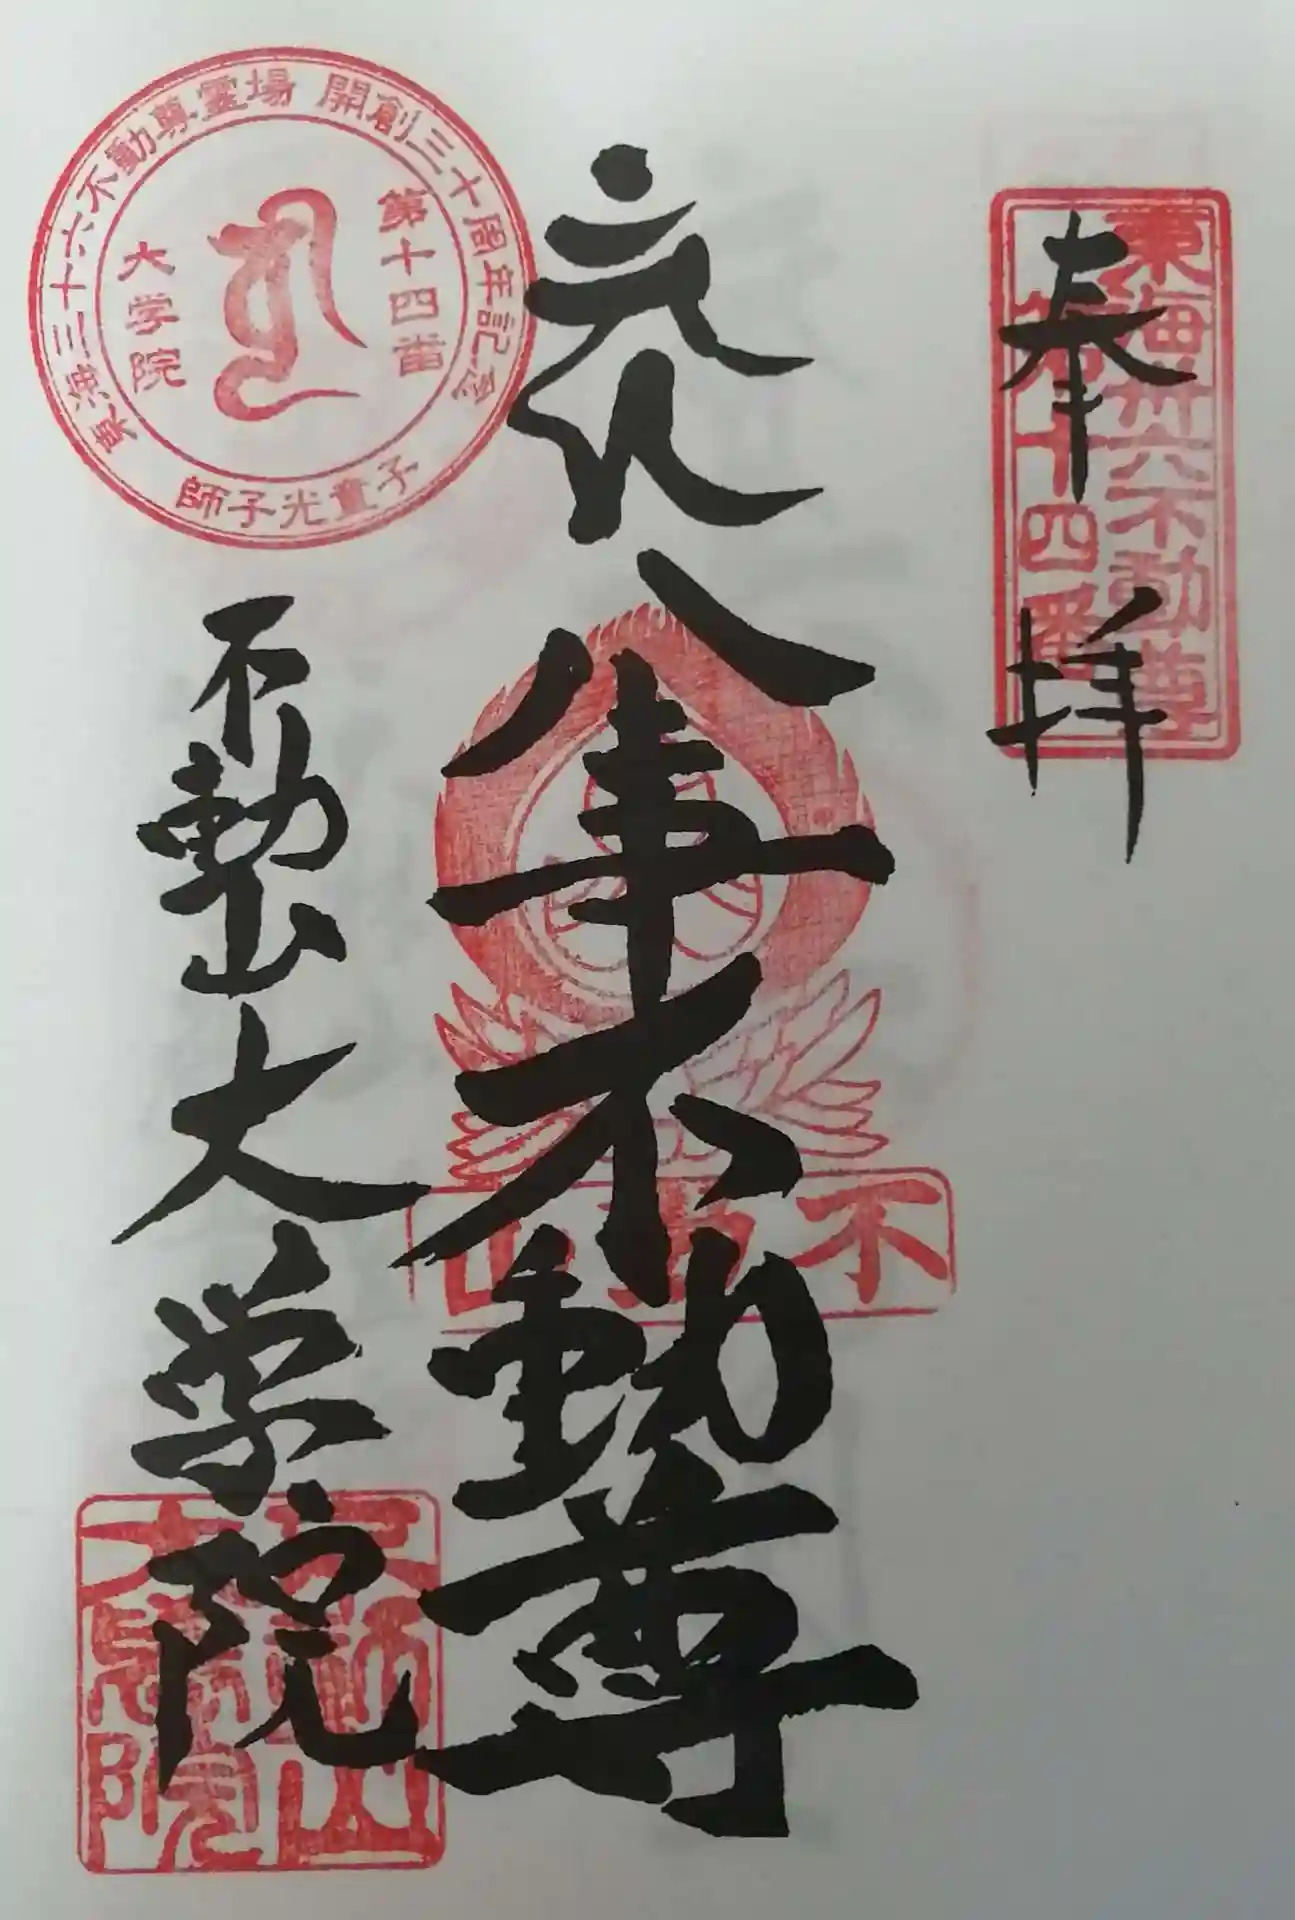 奉拝
東海卅六不動尊
第十四番
八事不動尊
不動山
不動山大学院
東海三十六不動尊霊場 開創三十周年記念
第十四番
大学院
師子光童子
不動山
大學院